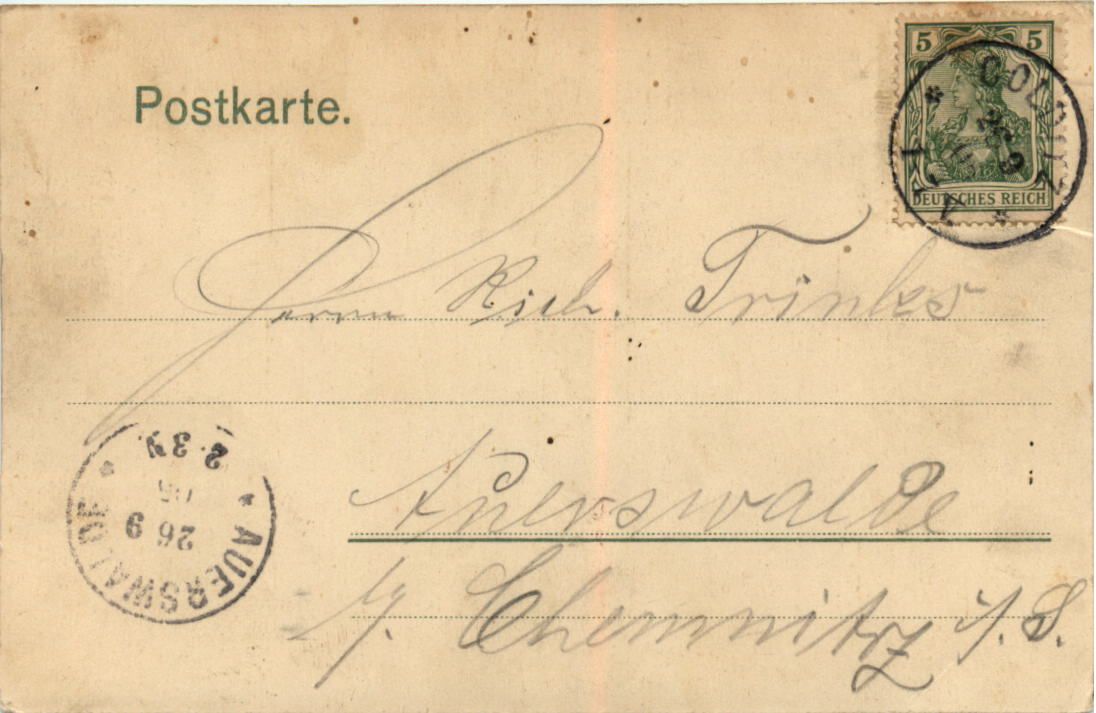 Postkarte.
5 5
DEUTSCHES REICH
COLDITZ
26 9
05
Herrn Rich. Trinks
Auerswalde
b/. Chemnitz i/. S.
AUERSWALDE
26 9
05
2-3N